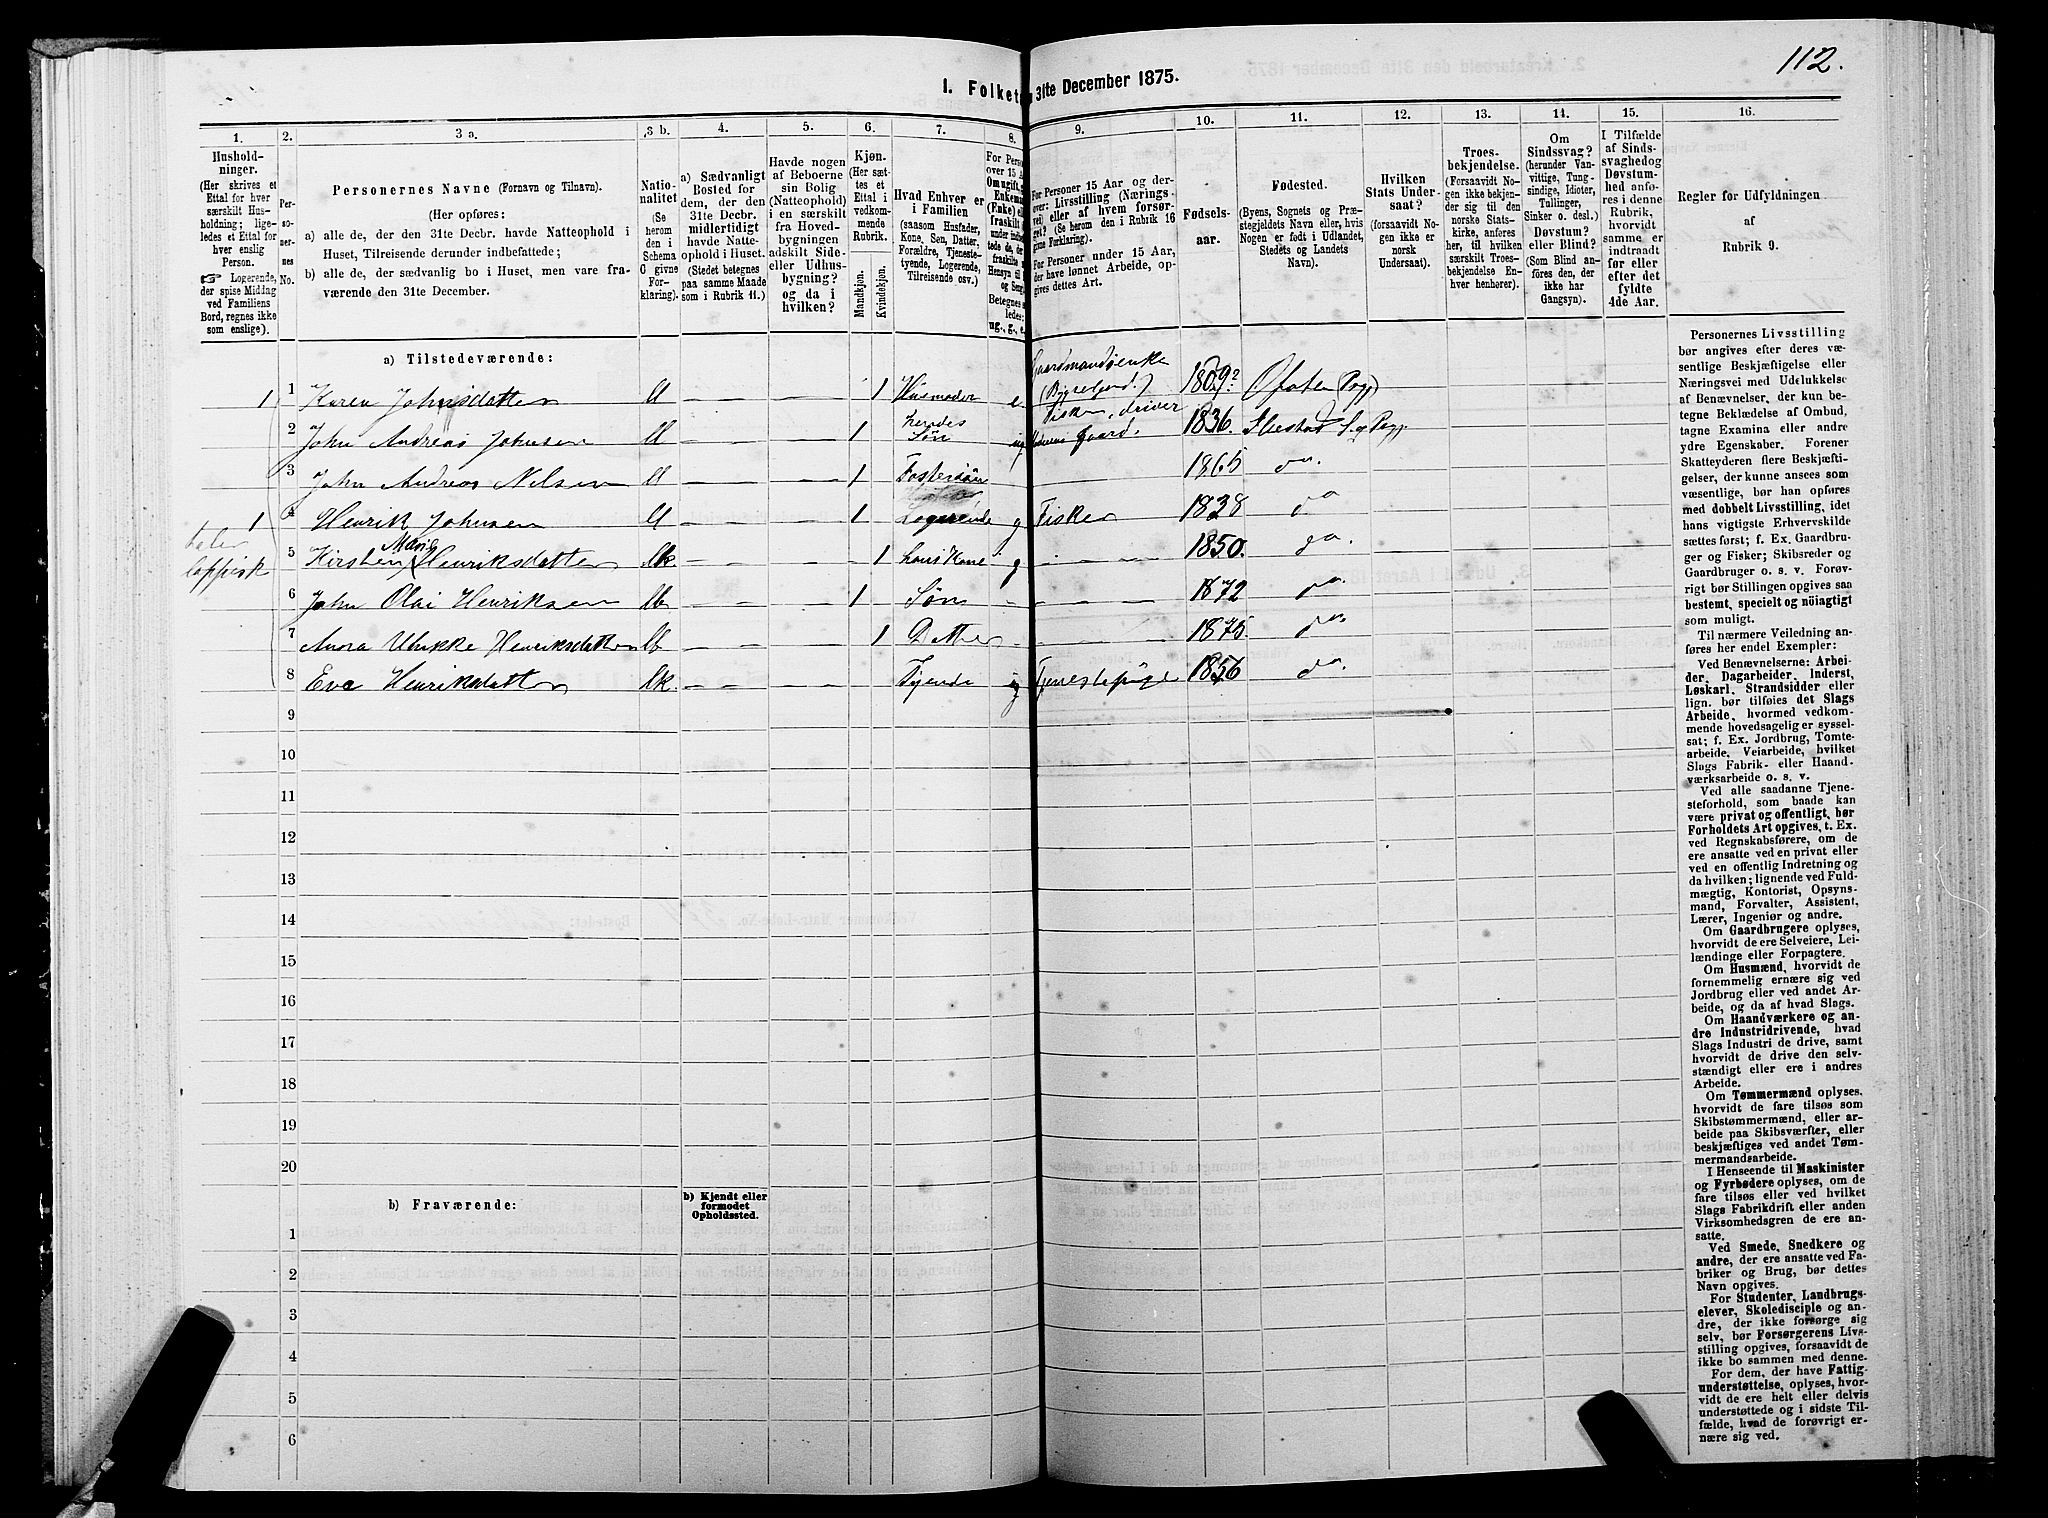 112.
I. Folket
31te December 1875.
1.
2.
3 a.
3 b.
4.
5.
6.
7.
8.
9.
10.
11.
12.
13.
14.
15.
16.
Hushold-
ninger.
(Her skrives et
Ettal for hver
særskilt Hus-
holdning; lige-
ledes et Ettal for
hver enslig
Person.
☞ Logerende,
der spise Middag
ved Familiens
Bord, regnes ikke
som enslige).
Per-
so-
ner-
nes
No.
Personernes Navne (Fornavn og Tilnavn).
(Her opføres:
a) alle de, der den 31te Decbr. havde Natteophold i
Huset, Tilreisende derunder indbefattede;
b) alle de, der sædvanlig bo i Huset, men vare fra-
værende den 31te December.
Natio-
nalitet
(Se
herom
den i
Schema
G givne
For-
klaring).
a) Sædvanligt
Bosted for
dem, der den
31te Decbr.
midlertidigt
havde Natte-
ophold i Huset.
(Stedet betegnes
paa samme Maade
som i Rubrik 11.)
Havde nogen
af Beboerne
sin Bolig
(Natteophold)
i en særskilt
fra Hoved-
bygningen
adskilt Side-
eller Udhus-
bygning?
og da i
hvilken?
Kjøn.
(Her sæt-
tes et
Ettal i
vedkom-
mende
Rubrik.
Mandkjøn.
Kvindekjøn.
Hvad Enhver er
i Familien
(saasom Husfader,
Kone, Søn, Datter,
Forældre, Tjeneste-
tyende, Logerende,
Tilreisende osv.)
For Perso
over 15 A
Om ugift, g
Enkema
(Enke) el
fraskilt
Betegnes s
ledes:
ug., g., e.
For Personer 15 Aar og der-
over: Livsstilling (Nærings-
vei) eller af hvem forsør-
get? (Se herom den i Rubrik 16
givne Forklaring).
For Personer under 15 Aar,
der have lønnet Arbeide, op-
gives dettes Art.
Fødsels-
aar.
Fødested.
(Byens, Sognets og Præ-
stegjeldets Navn eller, hvis
Nogen er født i Udlandet,
Stedets og Landets
Navn).
Hvilken
Stats Under-
saat?
(forsaavidt No-
gen ikke er
norsk
Undersaat).
Troes-
bekjendelse.
(Forsaavidt No-
gen ikke bekjen-
der sig til den
norske Stats-
kirke, anføres
her, til hvilken
særskilt Troes-
bekjendelse En-
hver henhører).
Om
Sindssvag?
(herunder Van-
vittige, Tung-
sindige, Idioter,
Tullinger,
Sinker o. desl.)
Døvstum?
eller Blind?
(Som Blind an-
føres den, der
ikke har
Gangsyn).
I Tilfælde
af Sinds-
svaghed og
Døvstum-
hed anfø-
res i denne
Rubrik,
hvorvidt
samme er
indtraadt
før eller
efter det
fyldte
4de Aar.
Regler for Udfyldningen
af
Rubrik 9.
a) Tilstedeværende:
1 1 Karen Johnsdatter U — — 1 Husmoder e Gaardmandsenke (Bygselgaard.) 1809? Ofoten Pgj
2 John Andreas Johnsen U — — 1 hendes Søn ug Fisker, driver Gaard. 1836. Ibestad S. og Pgj.
3 John Andreas Nilsen U — — 1 Fostersøn 1865 do.
1 4 Henrik Johnsen U — — 1 Logerende g Fisker 1838 do
taler lappisk
5 Kirsten Marie Henriksdatter 1 hans Kone g 1850. do.
6 John Olai Henriksen 1 Søn 1872 do
7 Anna Ulrikke Henriksdatter 1 Datter 1875. do.
8 Eva Henriksdatter Tyende ug Tjenestepige 1856 do.
9
10
11
12
13
14
15
16
17
18
19
20
b) Fraværende:
b) Kjendt eller
formodet
Opholdssted.
1
2
3
4
5
6
Personernes Livsstilling
bør angives efter deres væ-
sentlige Beskjæftigelse eller
Næringsvei med Udelukkelse
af Benævnelser, der kun be-
tegne Beklædelse af Ombud,
tagne Examina eller andre
ydre Egenskaber. Forener
Skatteyderen flere Beskjæfti-
gelser, der kunne ansees som
væsentlige, bør han opføres
med dobbelt Livsstilling, idet
hans vigtigste Erhvervskilde
sættes først; f. Ex. Gaardbru-
ger og Fisker; Skibsreder og
Gaardbruger o. s. v. Forøv-
rigt bør Stillingen opgives saa
bestemt, specielt og nöiagtigt
som muligt.
Til nærmere Veiledning an-
føres her endel Exempler:
Ved Benævnelserne: Arbei-
der, Dagarbeider, Inderst,
Løskarl, Strandsidder eller
lign. bør tilføies det Slags
Arbeide, hvormed vedkom-
mende hovedsagelig er syssel-
sat; f. Ex. Jordbrug, Tomte-
arbeide, Veiarbeide, hvilket
Slags Fabrik- eller Haand-
værksarbeide o. s. v.
Ved alle saadanne Tjene-
steforhold, som baade kan
være privat og offentligt, bør
Forholdets Art opgives, t. Ex.
ved Regnskabsførere, om de
ere ansatte ved en privat eller
ved en offentlig Indretning og
da hvilken; lignende ved Fuld-
mægtig, Kontorist, Opsyns-
mand, Forvalter, Assistent,
Lærer, Ingeniør og andre.
Om Gaardbrugere oplyses,
hvorvidt de ere Selveiere, Lei-
lændinge eller Forpagtere.
Om Husmænd, hvorvidt de
fornemmelig ernære sig ved
Jordbrug eller ved andet Ar-
beide, og da af hvad Slags.
Om Haandværkere og an-
dre Industridrivende, hvad
Slags Industri de drive, samt
hvorvidt de drive den selv-
stændigt eller ere i andres
Arbeide.
Om Tømmermænd oplyses,
hvorvidt de fare tilsøs som
Skibstømmermænd, eller ar-
beide paa Skibsværfter, eller
beskjæftiges ved andet Tøm-
mermandsarbeide.
I Henseende til Maskinister
og Fyrbødere oplyses, om de
fare tilsøs eller ved hvilket
Slags Fabrikdrift eller anden
Virksomhedsgren de ere an-
satte.
Ved Smede, Snedkere og
andre, der ere ansatte ved Fa-
briker og Brug, bør dettes
Navn opgives.
For Studenter, Landbrugs-
elever, Skoledisciple og an-
dre, der ikke forsørge sig
selv, bør Forsørgerens Livs-
stilling opgives, forsaavidt de
ikke bo sammen med denne.
For dem, der have Fattig-
understøttelse, oplyses, hvor-
vidt de ere helt eller delvis
understøttede og i sidste Til-
fælde, hvad de forøvrigt er-
nære sig ved.